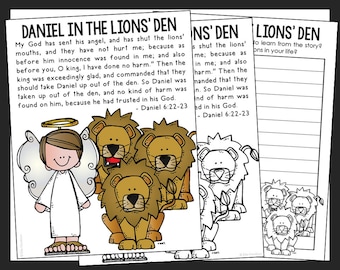 DANIEL IN THE LIONS' DEN
My God has sent his angel, and has shut the lions'
mouths, and they have not hurt me; because as
before him innocence was found in me; and also
before you, O king, I have done no harm." Then the
king was exceedingly glad, and commanded that they
should take Daniel up out of the den. So Daniel was
taken up out of the den, and no kind of harm was
found on him, because he had trusted in his God.
- Daniel 6:22-23
LIONS' DEN
has shut the lions'
me; because as
in me; and also
harm." Then the
commanded that they
den. So Daniel was
kind of harm was
in his God.
- Daniel 6:22-23
LIONS' DEN
learn from the story?
lions in your life?